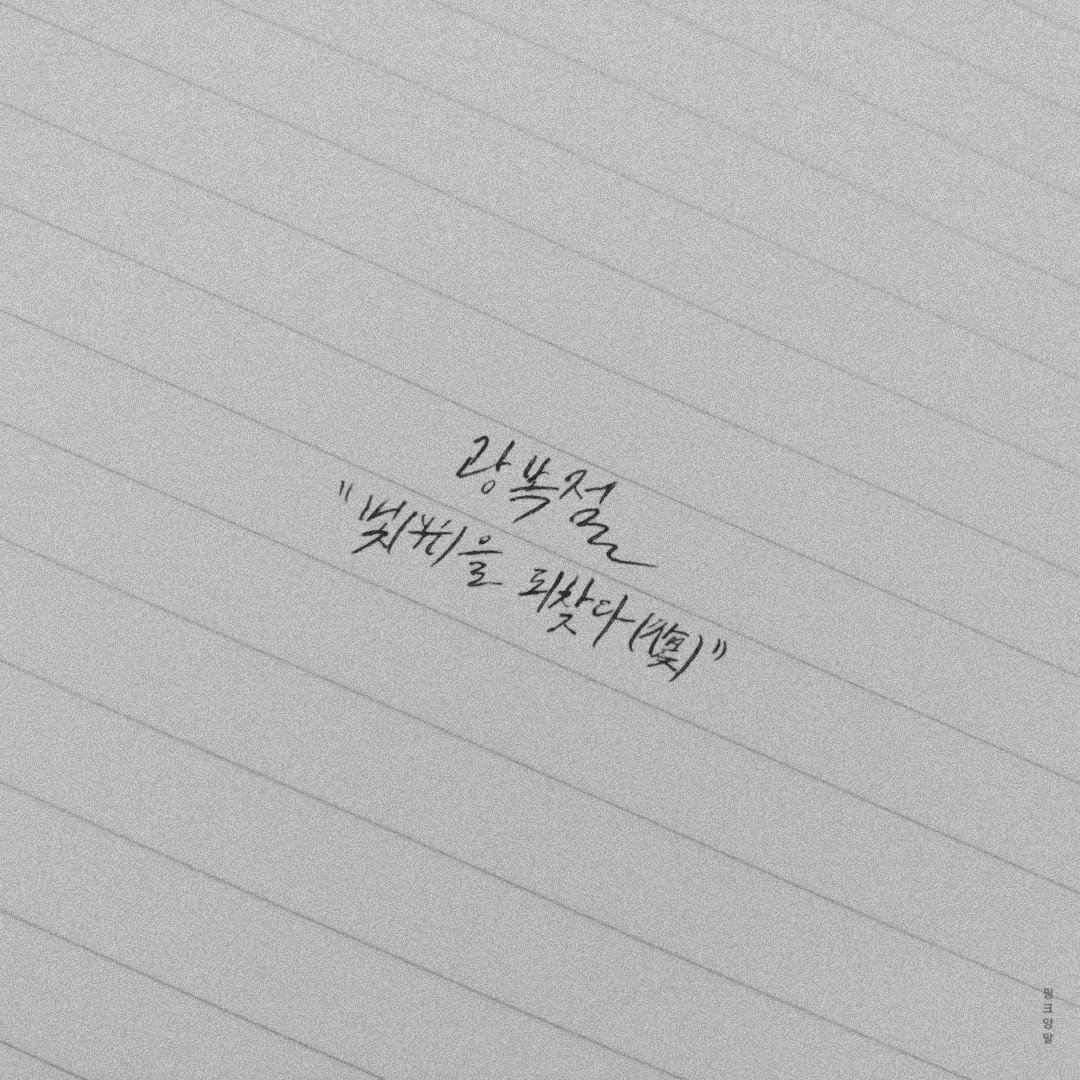 광복절
"빛(光)을 되찾다(復)"
핑크양말